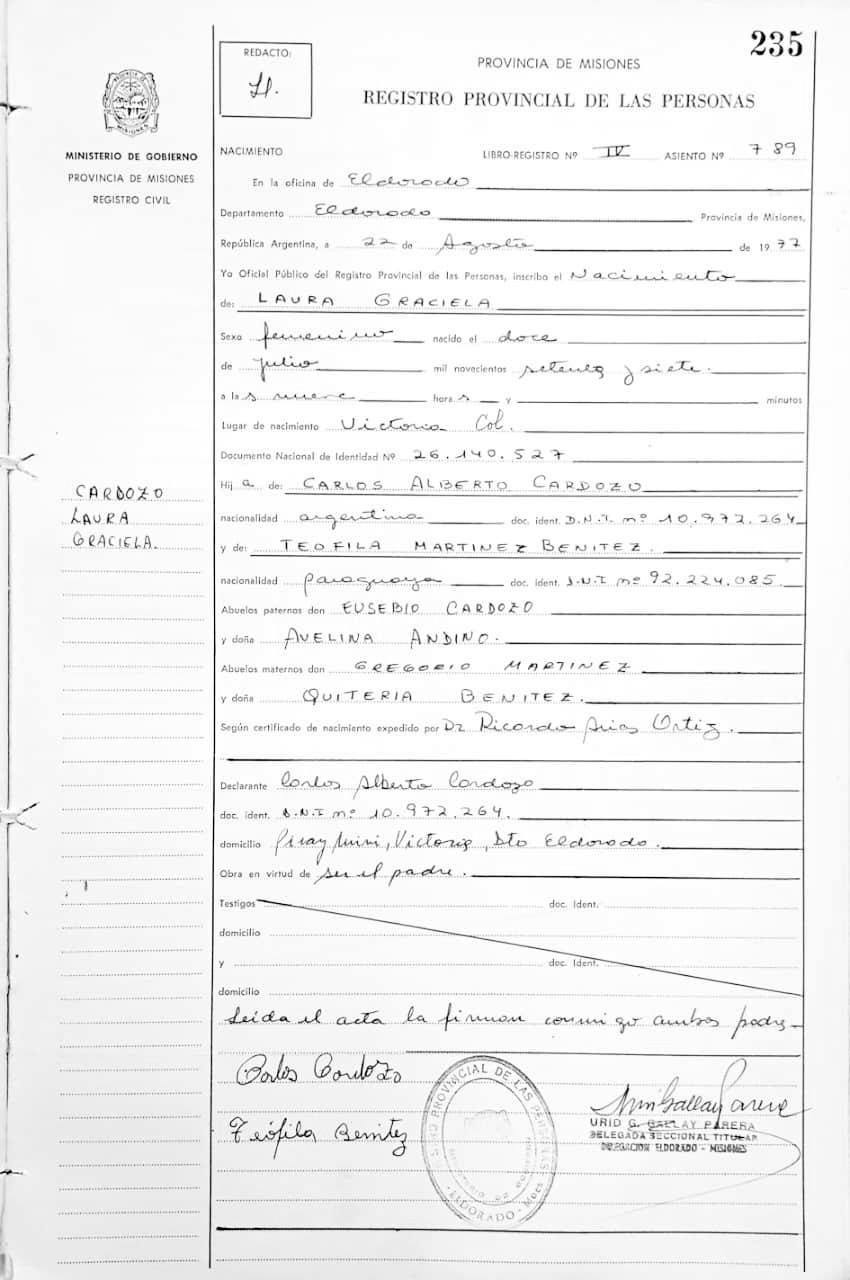 235
REDACTO:
PROVINCIA DE MISIONES
REGISTRO PROVINCIAL DE LAS PERSONAS
PROVINCIA DE
MISIONES
MINISTERIO DE GOBIERNO
PROVINCIA DE MISIONES
REGISTRO CIVIL
NACIMIENTO LIBRO-REGISTRO Nº IV ASIENTO Nº 789
En la oficina de Eldorado
Departamento Eldorado Provincia de Misiones,
República Argentina, a 22 de Agosto de 1977
Yo Oficial Público del Registro Provincial de las Personas, inscribo el Nacimiento
de: LAURA GRACIELA
Sexo femenino nacido el doce
de julio mil novecientos setenta y siete.
a las nueve horas y minutos
Lugar de nacimiento Victoria Col.
Documento Nacional de Identidad Nº 26.140.527
CARDOZO
LAURA
GRACIELA.
Hija de: CARLOS ALBERTO CARDOZO
nacionalidad argentina doc. ident. D.N.I. nº 10.972.264
y de: TEOFILA MARTINEZ BENITEZ.
nacionalidad paraguaya doc. ident. D.N.I nº 92.224.085.
Abuelos paternos don EUSEBIO CARDOZO
y doña AVELINA ANDINO.
Abuelos maternos don GREGORIO MARTINEZ
y doña QUITERIA BENITEZ.
Según certificado de nacimiento expedido por Dr Ricardo Arias Ortiz.
Declarante Carlos Alberto Cardozo
doc. ident. D.N.I nº 10.972.264.
domicilio Victoria, Dto Eldorado.
Obra en virtud de ser el padre.
Testigos doc. Ident.
domicilio
y doc. Ident.
domicilio
Leída el acta la firman conmigo ambos padres
Carlos Cardozo
Teófila Benitez
PROVINCIAL DE LAS PERSONAS
ELDORADO
URID G. GALLAY PARERA
DELEGADA SECCIONAL TITULAR
DELEGACION ELDORADO - MISIONES